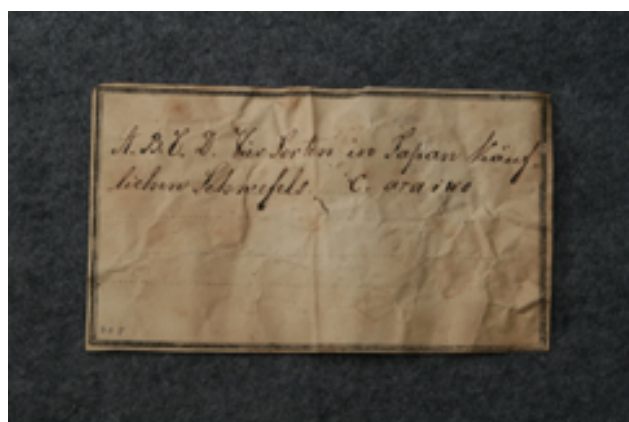 A. B. C. D. Vier Sorten in Japan käuf-
lichen Schwefels. C. ara iwo